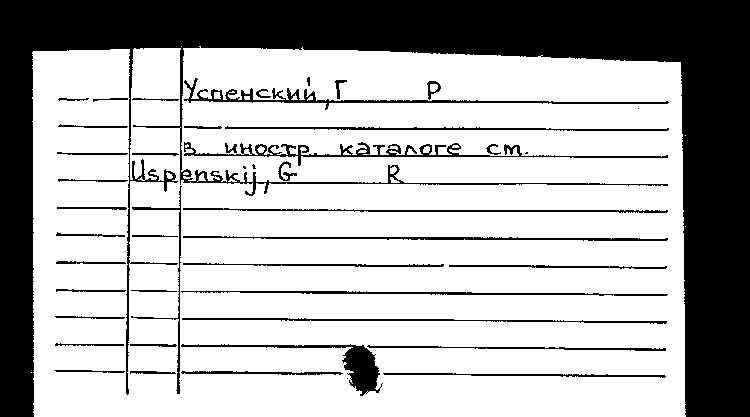 Успенский, Г Р
в иностр. каталоге см.
Uspenskij, G R